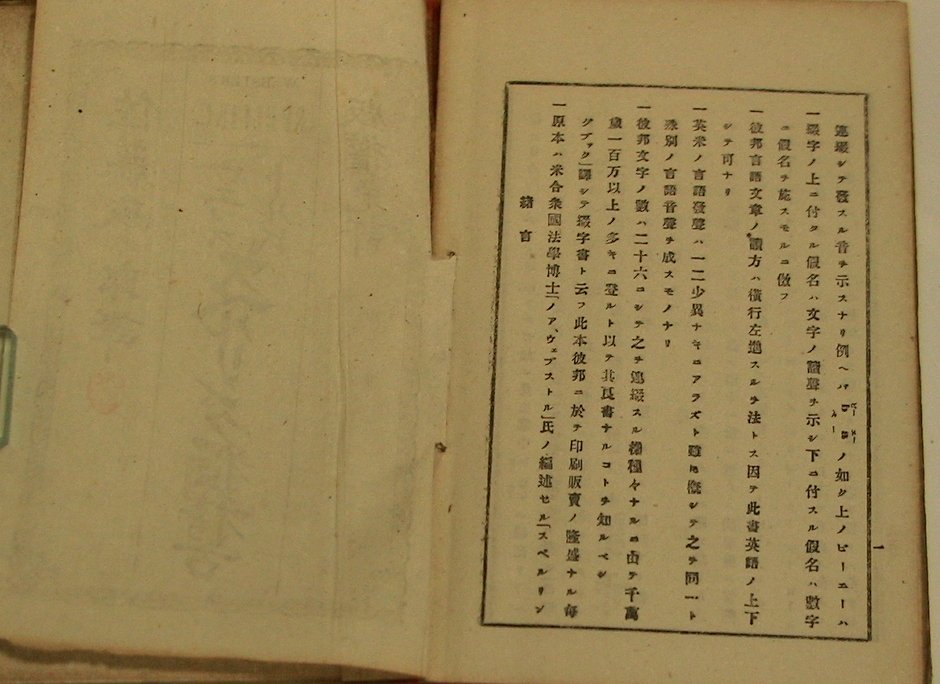 緒言
一原本ハ米合衆國法學博士「ノア、ウェブストル」氏ノ編述セル「スペルリン
グブック」譯シテ綴字書ト云フ此本彼邦ニ於テ印刷販賣ノ隆盛ナル毎
歳一百万以上ノ多キニ登ルト以テ其良書ナルコトヲ知ルベシ
一彼邦文字ノ數ハ二十六ニシテ之ヲ連綴スル種々ナルニ由テ千萬
殊別ノ言語音聲ヲ成スモノナリ
一英米ノ言語發聲ハ一二少異ナキニアラズト雖ㇳモ概シテ之ヲ同一ト
シテ可ナリ
一彼邦言語文章ノ讀方ハ横行左起スルヲ法トス因テ此書英語ノ上下
ニ假名ヲ施スモルニ倣フ
一綴字ノ上ニ付タル假名ハ文字ノ讀聲ヲ示シ下ニ付スル假名ハ數字
連綴シテ發スル音ヲ示スナリ例ヘハノ如ク上ノビーエーハ
一